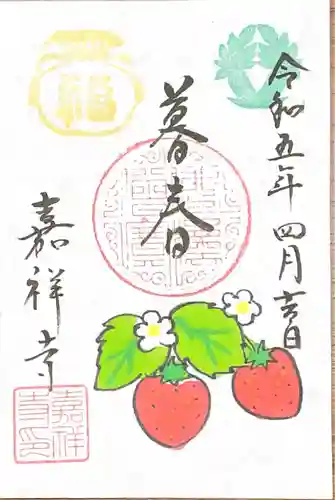 令和五年四月吉日
暮春
嘉祥寺
福
嘉祥
寺印